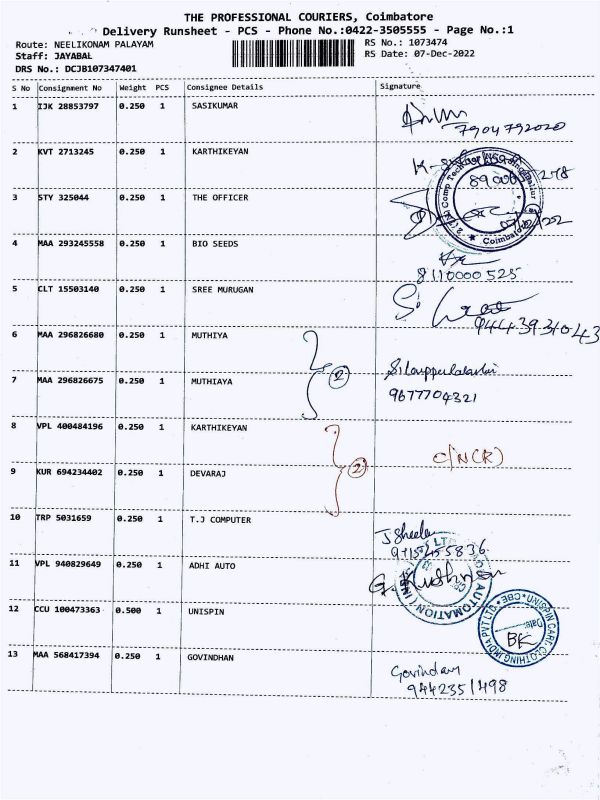 THE PROFESSIONAL COURIERS, Coimbatore
Delivery Runsheet - PCS - Phone No.:0422-3505555 - Page No.:1
Route: NEELIKONAM PALAYAM
RS No.: 1073474
Staff: JAYABAL
RS Date: 07-Dec-2022
DRS No.: DCJB107347401
S No Consignment No Weight PCS Consignee Details Signature
1 IJK 28853797 0.250 1 SASIKUMAR
7904792020
2 KVT 2713245 0.250 1 KARTHIKEYAN
3 STY 325044 0.250 1 THE OFFICER
Coimbatore
4 MAA 293245558 0.250 1 BIO SEEDS
8110000525
5 CLT 15503140 0.250 1 SREE MURUGAN
9443931043
6 MAA 296826680 0.250 1 MUTHIYA
2
7 MAA 296826675 0.250 1 MUTHIAYA
9677704321
8 VPL 400484196 0.250 1 KARTHIKEYAN
2 C/N(R)
9 KUR 694234402 0.250 1 DEVARAJ
10 TRP 5031659 0.250 1 T.J COMPUTER
J Sheela
11 VPL 940829649 0.250 1 ADHI AUTO
AUTOMATION
12 CCU 100473363 0.500 1 UNISPIN
UNISPIN CART CLOTHING INDIA PVT LTD. CBE.
Date:
BK
13 MAA 568417394 0.250 1 GOVINDHAN
Govindan
9442351498